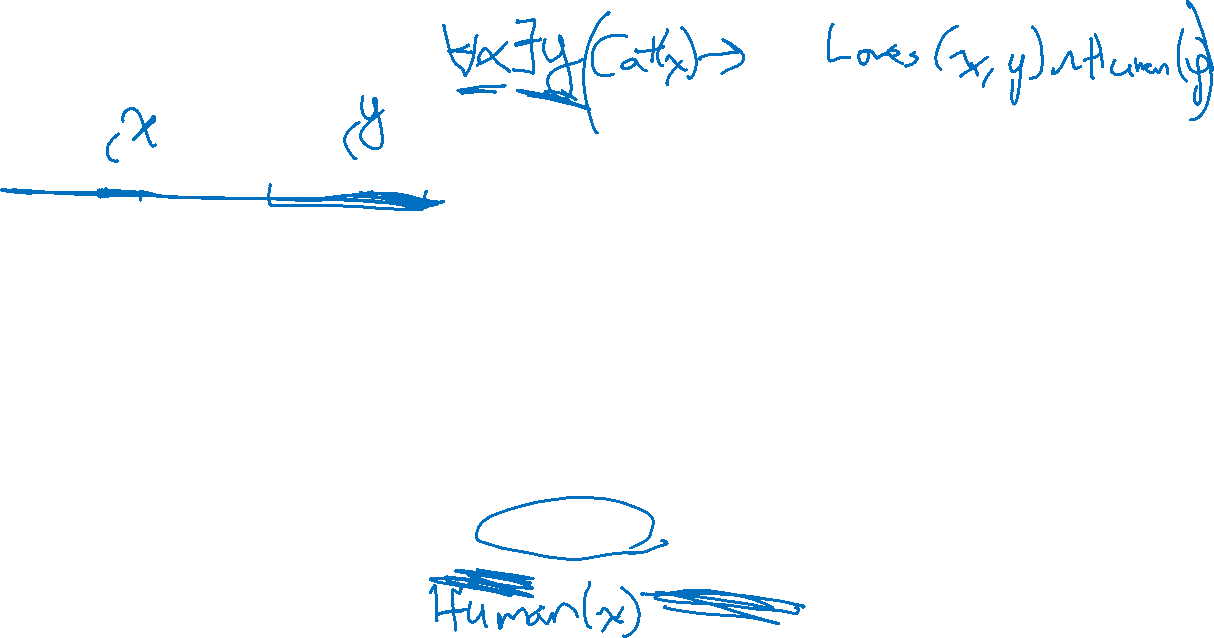 ∀x∃y(Cat(x)→ Loves(x,y)∧Human(y))
x y
Human(x)